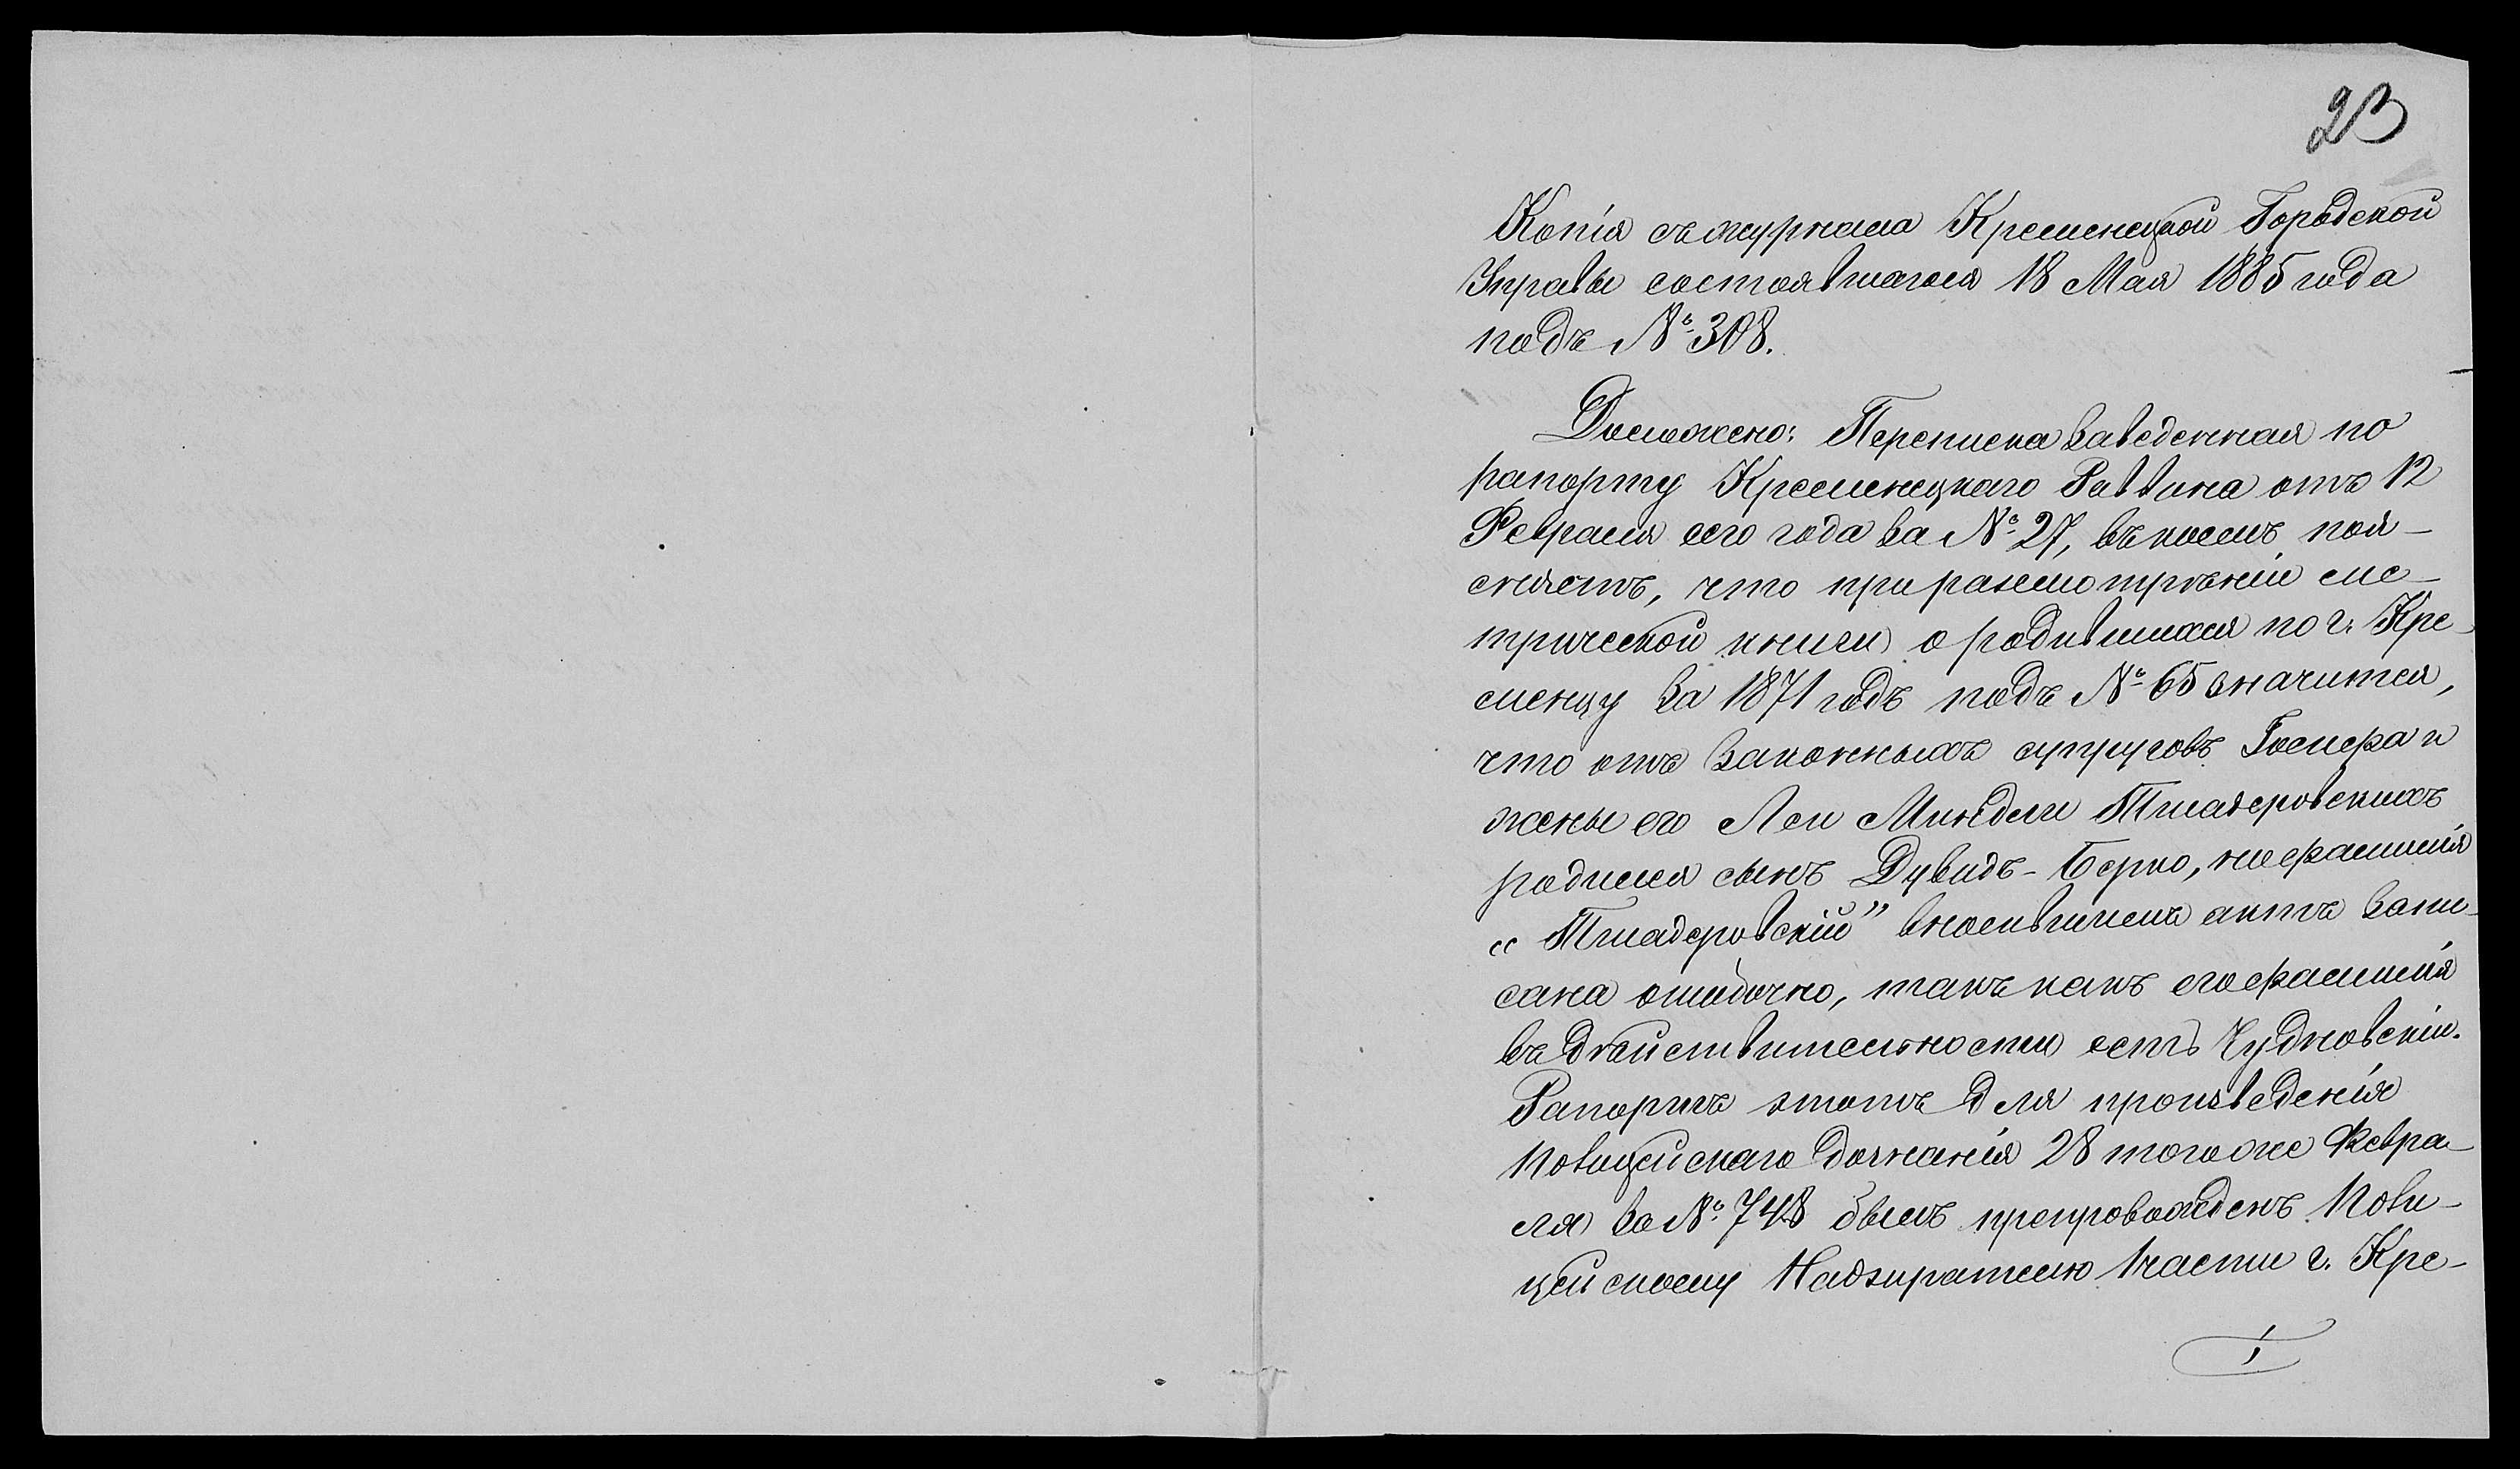 23
Копія съ журнала Кременецкой Городской
Управы состоявшагося 18 Мая 1885 года
подъ № 308.
Доложено: Переписка заведенная по
рапорту Кременецкаго Раввина отъ 12
Февраля сего года за № 27, въ коемъ пол-
сняетъ, что при разсмотрѣніи ме-
трической книги о родившихся по г. Кре-
менцу за 1871 годъ подъ № 65 значится,
что отъ законныхъ супруговъ Госифа и
жены его Леи Миндли Тшадеровскихъ
родился сынъ Дувидъ-Берко, но фамилія
„Тшадеровскій" вносившимъ актъ запи-
сана ошибочно, такъ какъ его фамилія
въ дѣйствительности есть Чудновскій.
Рапортъ этотъ для произведенія
полицейскаго дознанія 28 того же Февра-
ля за № 748 былъ препровожденъ Поли-
цейскому Надзирателю 1 части г. Кре-